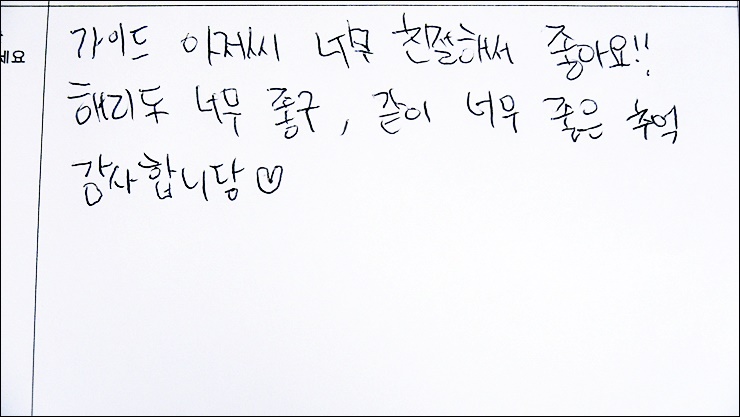 세요
가이드 아저씨 너무 친절해서 좋아요!!
해리도 너무 좋구, 같이 너무 좋은 추억
감사합니당♡